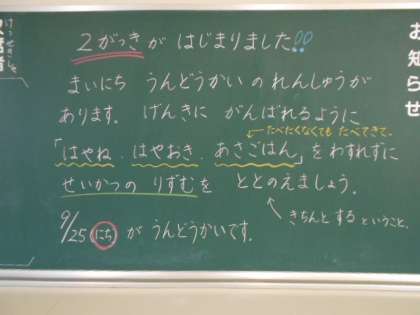 ２がっきが はじまりました!!
まいにち うんどうかいの れんしゅうが
あります。げんきに がんばれるように
←たべたくなくても たべてきて。
「はやね、はやおき、あさごはん」を わすれずに
せいかつの りずむを ととのえましょう。
きちんとする ということ。
9/25(にち)が うんどうかいです。
お知らせ